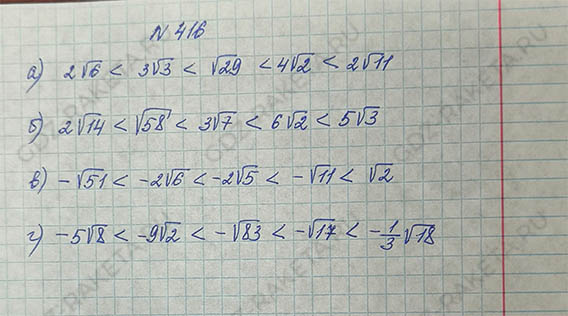 N 416
а) 2√6 < 3√3 < √29 < 4√2 < 2√11
б) 2√14 < √58 < 3√7 < 6√2 < 5√3
в) -√51 < -2√6 < -2√5 < -√11 < √2
г) -5√8 < -9√2 < -√83 < -√17 < -1/3√18